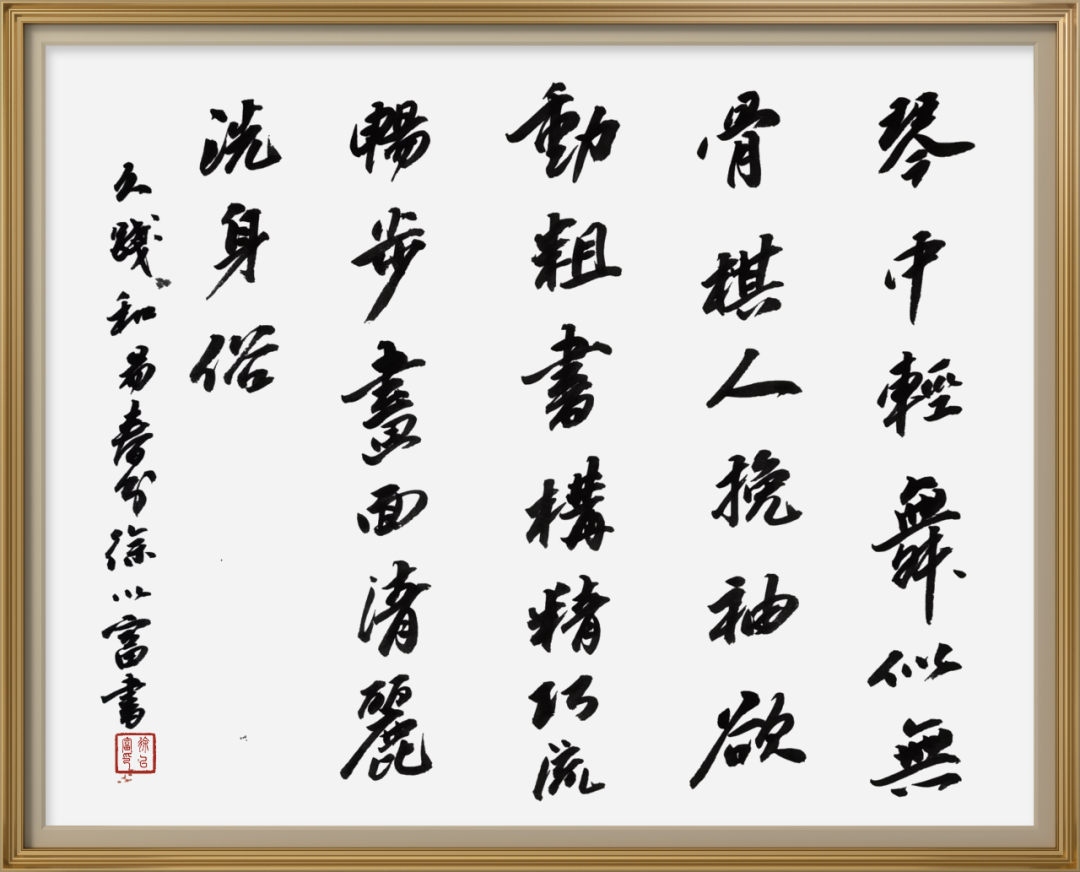 琴中輕舞似無
骨棋人挽袖欲
動粗書構精巧流
暢步畫面清麗
洗身俗
久踐和易春分徐以富書
徐以富印